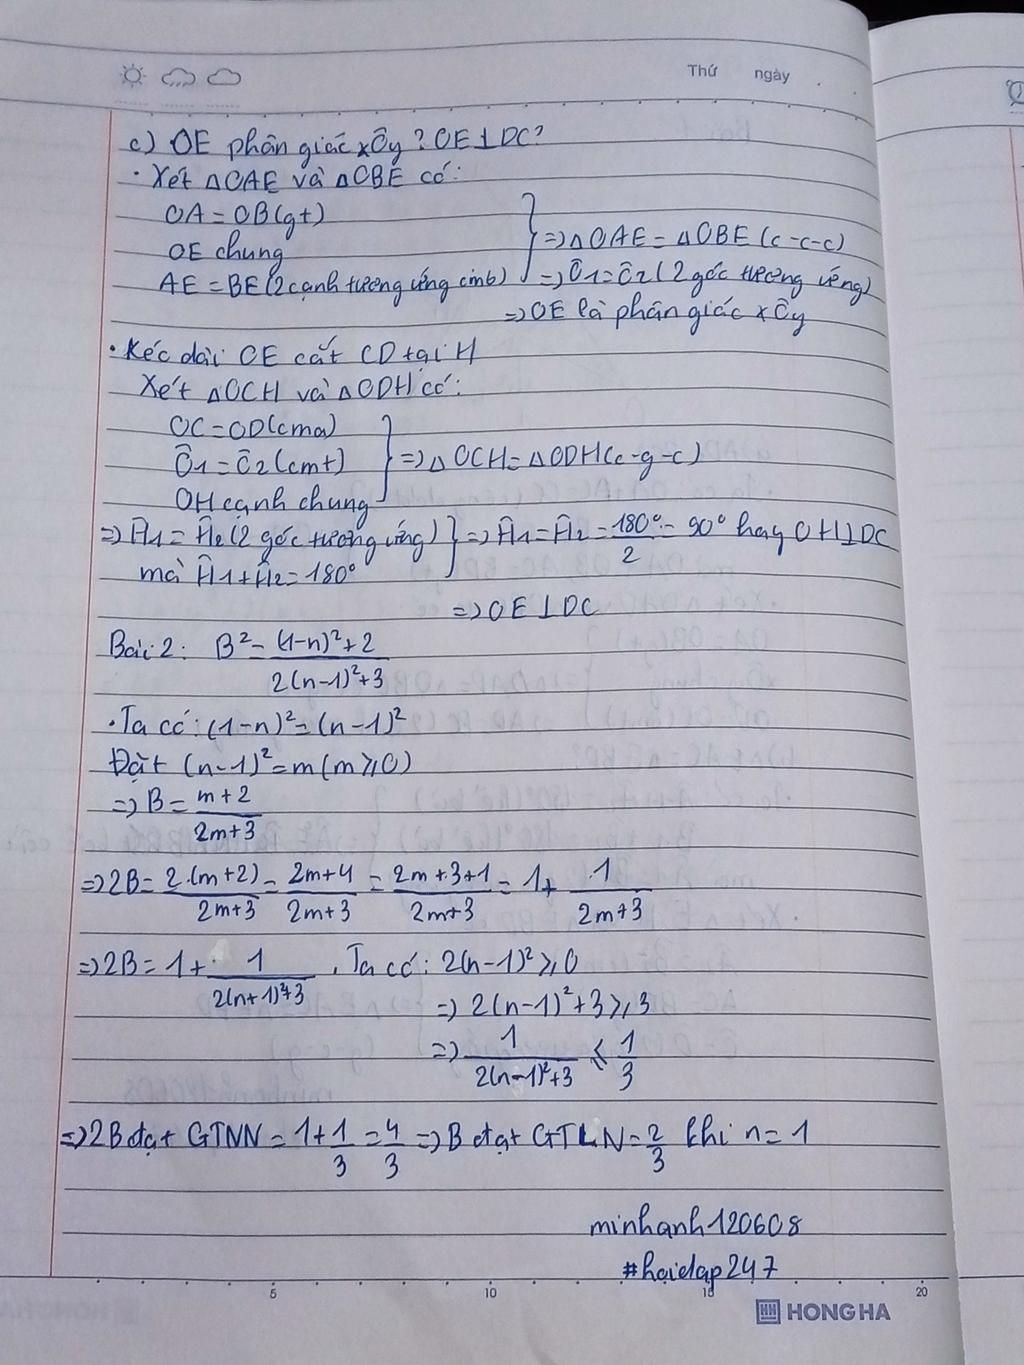 Thứ ngày
c) OE phân giác xÔy? OE⊥DC?
• Xét △OAE và △OBE có:
OA = OB(gt)
OE chung
AE = BE(2 cạnh tương ứng cmb)
=> △OAE = △OBE (c-c-c)
=> Ô1 = Ô2 (2 góc tương ứng)
=> OE là phân giác xÔy
• Kéo dài OE cắt CD tại H
Xét △OCH và △ODH có:
OC = OD(cma)
Ô1 = Ô2 (cmt)
OH cạnh chung
=> △OCH = △ODH(c-g-c)
=> Ĥ1 = Ĥ2 (2 góc tương ứng)
mà Ĥ1 + Ĥ2 = 180°
=> Ĥ1 = Ĥ2 = 180°/2 = 90° hay OH⊥DC
=> OE⊥DC
Bài 2: B² = ((1-n)²+2)/(2(n-1)²+3)
• Ta có: (1-n)² = (n-1)²
Đặt (n-1)² = m (m ⩾ 0)
=> B = (m+2)/(2m+3)
=> 2B = 2.(m+2)/(2m+3) = (2m+4)/(2m+3) = (2m+3+1)/(2m+3) = 1 + 1/(2m+3)
=> 2B = 1 + 1/(2(n+1)²+3). Ta có: 2(n-1)² ⩾ 0
=> 2(n-1)²+3 ⩾ 3
=> 1/(2(n-1)²+3) ⩽ 1/3
=> 2B đạt GTNN = 1 + 1/3 = 4/3 => B đạt GTLN = 2/3 khi n = 1
minhanh120608
#hoidap247
5 10 15 20
HH HONG HA